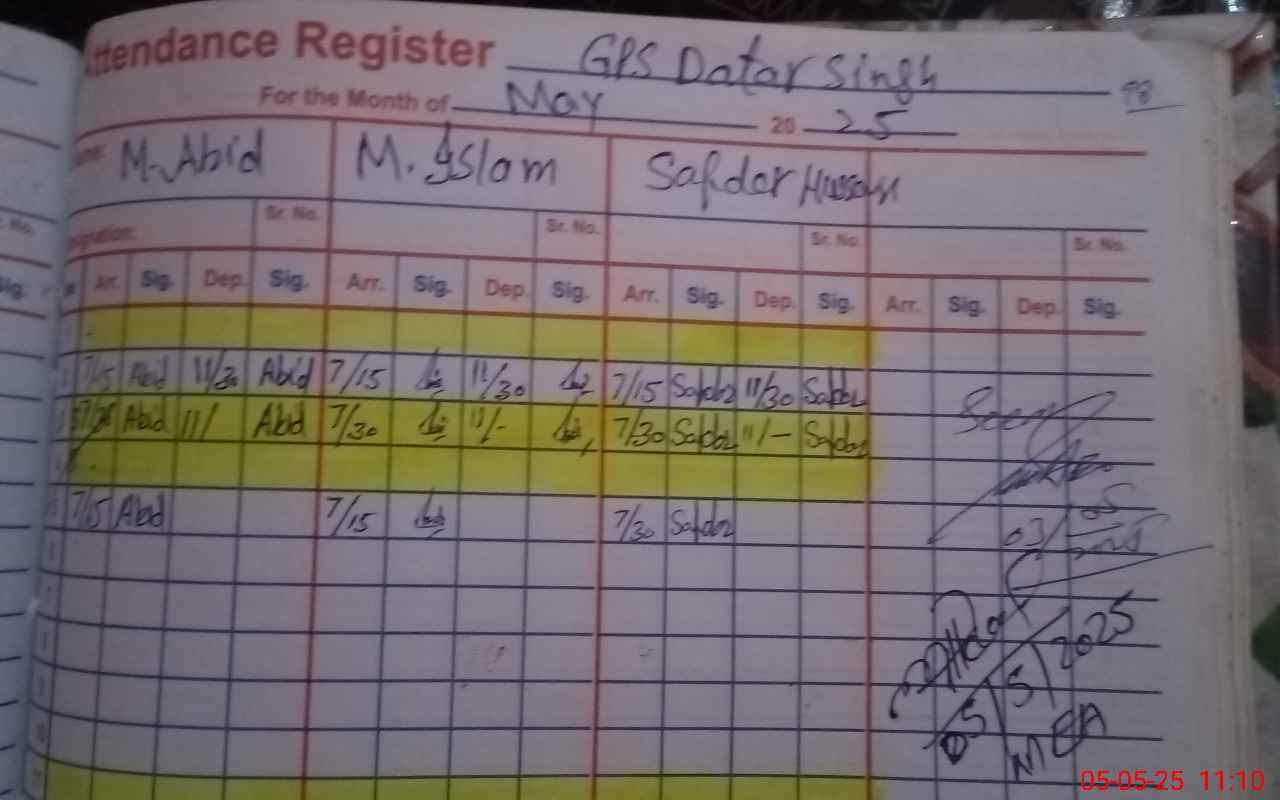 Attendance Register GPS Datar Singh
98
For the Month of May 20 25
M. Abid M. Islam Safdar Hussain
Sr. No. Sr. No. Sr. No. Sr. No.
Arr. Sig. Dep. Sig. Arr. Sig. Dep. Sig. Arr. Sig. Dep. Sig. Arr. Sig. Dep. Sig.
7/15 Abid 11/30 Abid 7/15 11/30 7/15 Safdar 11/30 Safdar
Abid 11/ Abid 7/30 11/- 7/30 Safdar 11/- Safdar
7/15 Abid 7/15 7/30 Safdar
Seen
03/05
8
05/5/2025
9
10
MEA
11
05-05-25 11:10